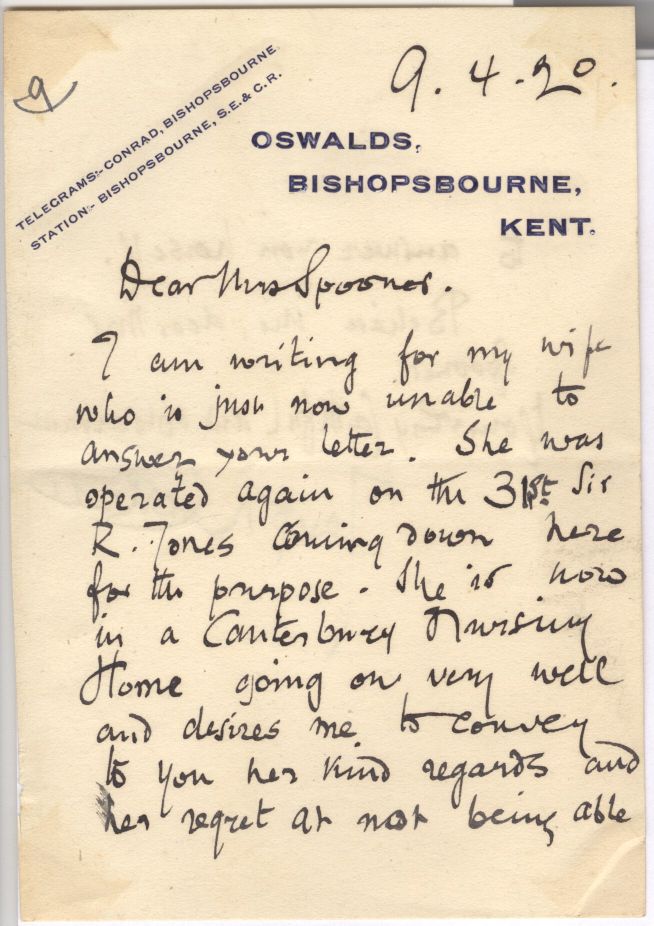 9
9.4.20.
TELEGRAMS:- CONRAD, BISHOPSBOURNE
STATION:- BISHOPSBOURNE, S.E. & C.R.
OSWALDS,
BISHOPSBOURNE,
KENT.
Dear Mrs Spooner.
I am writing for my wife
who is just now unable to
answer your letter. She was
operated again on the 31st Sir
R. Jones coming down here
for the purpose. She is now
in a Canterbury Nursing
Home going on very well
and desires me to convey
to you her kind regards and
her regret at not being able